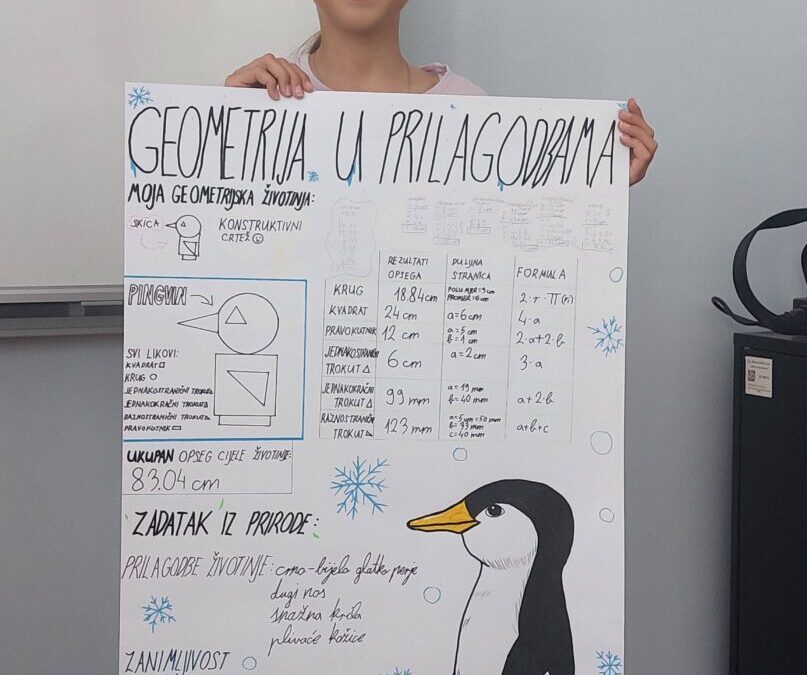 GEOMETRIJA U PRILAGODBAMA
MOJA GEOMETRIJSKA ŽIVOTINJA:
SKICA
KONSTRUKTIVNI
CRTEŽ
PINGVIN
SVI LIKOVI:
KVADRAT
KRUG
JEDNAKOSTRANIČNI TROKUT
JEDNAKOKRAČNI TROKUT
RAZNOSTRANIČNI TROKUT
PRAVOKUTNIK
REZULTATI OPSEGA DULJINA STRANICA FORMULA
KRUG 18.84cm POLUMJER=3cm PROMJER=6cm 2·r·π(pi)
KVADRAT 24 cm a=6cm 4·a
PRAVOKUTNIK 12 cm a=5cm b=1cm 2·a+2·b
JEDNAKOSTRANIČNI TROKUT 6 cm a=2cm 3·a
JEDNAKOKRAČNI TROKUT 99 mm a=19mm b=40mm a+2·b
RAZNOSTRANIČNI TROKUT 123 mm a=5cm=50mm b=33mm c=40mm a+b+c
UKUPAN OPSEG CIJELE ŽIVOTINJE:
83.04 cm
ZADATAK IZ PRIRODE:
PRILAGODBE ŽIVOTINJE: crno-bijelo glatko perje
dugi nos
snažna krila
plivaće kožice
ZANIMLJIVOST